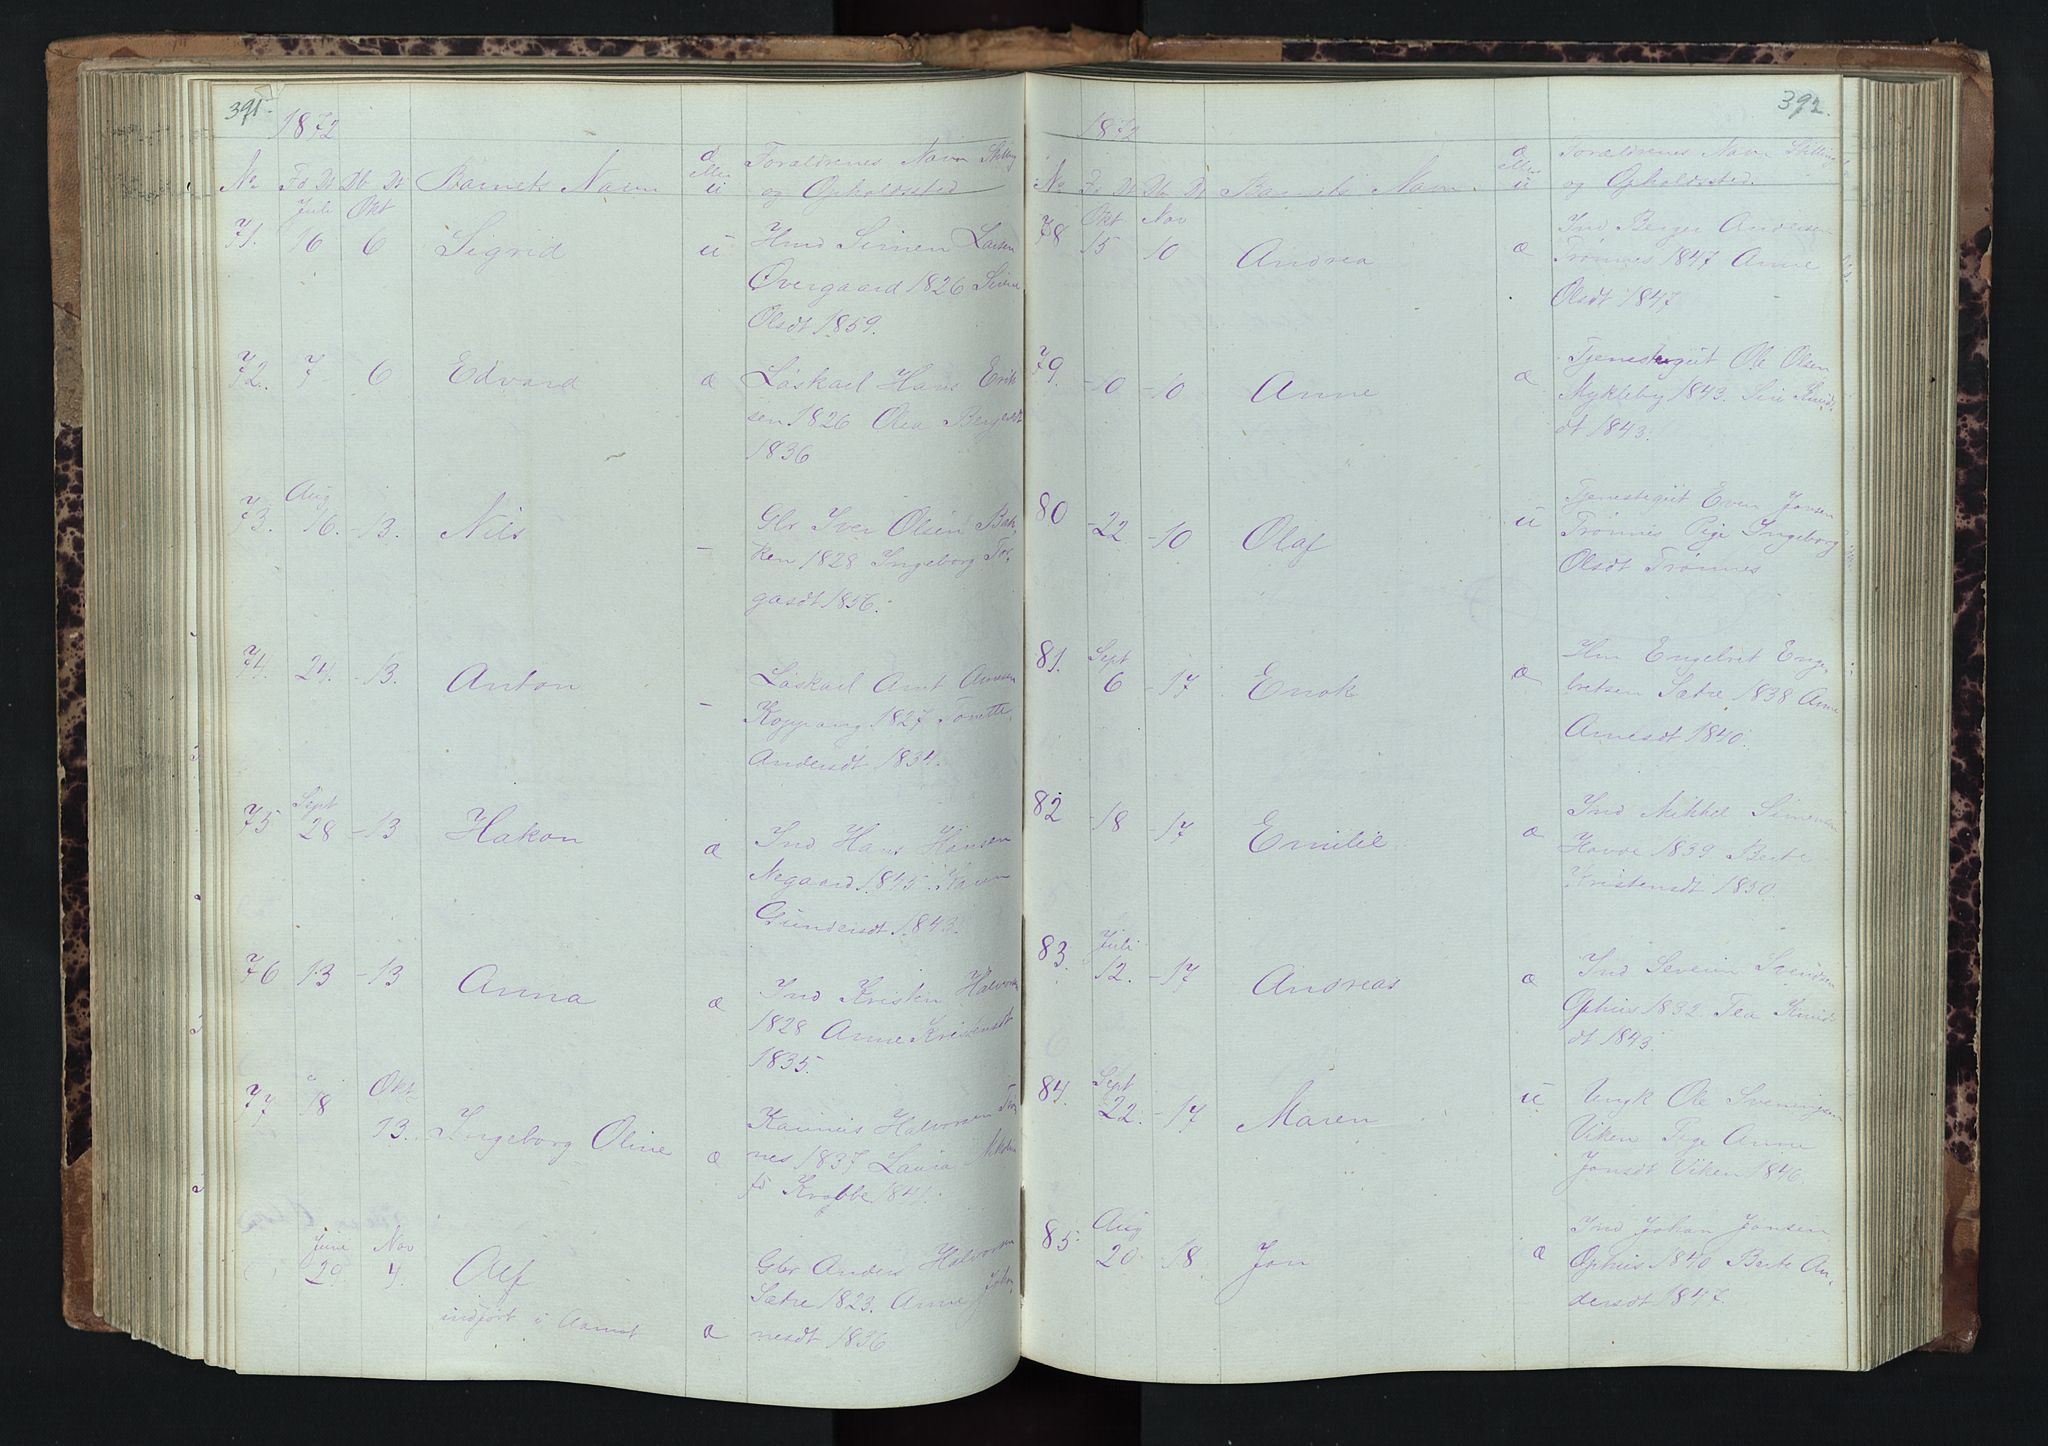 391.
1872
No Fd Dt Db Dt Barnets Navn æ eller u Forældrenes Navn Stilling
og Opholdssted
Juli Okt
71. 16 6 Sigrid u Hmd Simen Larsen
Øvergaard 1826
Olsdt 1859.
72. 7 6 Edvard æ Løskarl Hans Erik
sen 1826 Olea Bergersdt
1836
Aug
73. 16. -13. Nils - Gbr Iver Olsen Bak
ken 1828 Ingeborg Tor-
gasdt 1856.
74. 24. -13. Anton - Løskarl Arnt Arnesen
Koppang 1827 Tonette
Andersdt 1834.
Sept
75 28 -13 Hakon æ Ind Hans Hansen
Negaard 1845. Karen
Gundersdt 1843.
76 13 -13 Anna æ Ind Kristen Halvorsen
1828 Anne Kristensdt
1835.
Okt
77 18 13. Ingeborg Oline æ Halvorsen Trøn
nes 1837 Laura
fd Krabbe 1841.
Juni Nov
20 4. Alf Gbr Anders Halvorsen
Sætre 1823. Anne Johan
indført i Aamot æ nesdt 1836
392.
1872
No Fd Dt Db Dt Barnets Navn æ eller u Forældrenes Navn Stilling
og Opholdssted.
Okt Nov
78 15 10 Andrea æ Ind Berger Andersen
Trønnes 1847 Anne
Olsdt 1847
79. -10 -10 Anne æ Tjenestegut Ole Olsen
Mykleby 1843. Siri Knuds
dt 1843.
80 -22 -10 Olaf u Tjenestegut Even Jonsen
Trønnes Pige Ingeborg
Olsdt Trønnes
Sept
81. 6 -17 Enok æ Hm Engebret Enge-
bretsen Sætre 1838 Anne
Arnesdt 1840.
82 -18 -17 Emilie æ Ind Mikkel Simensen
Hovde 1839 Berte
Kristensdt 1830.
Juli
83. 12. -17 Andreas æ Ind Severin Svendsen
Ophus 1832. Tea Knuds
dt 1843.
Sept
84. 22. -17 Maren u Ungk Ole Svenningsen
Viken Pige Anne
Jonsdt Viken 1846.
Aug
85. 20 -18. Jon æ Ind Johan Jonsen
Ophus 1840 Berte An-
dersdt 1847.